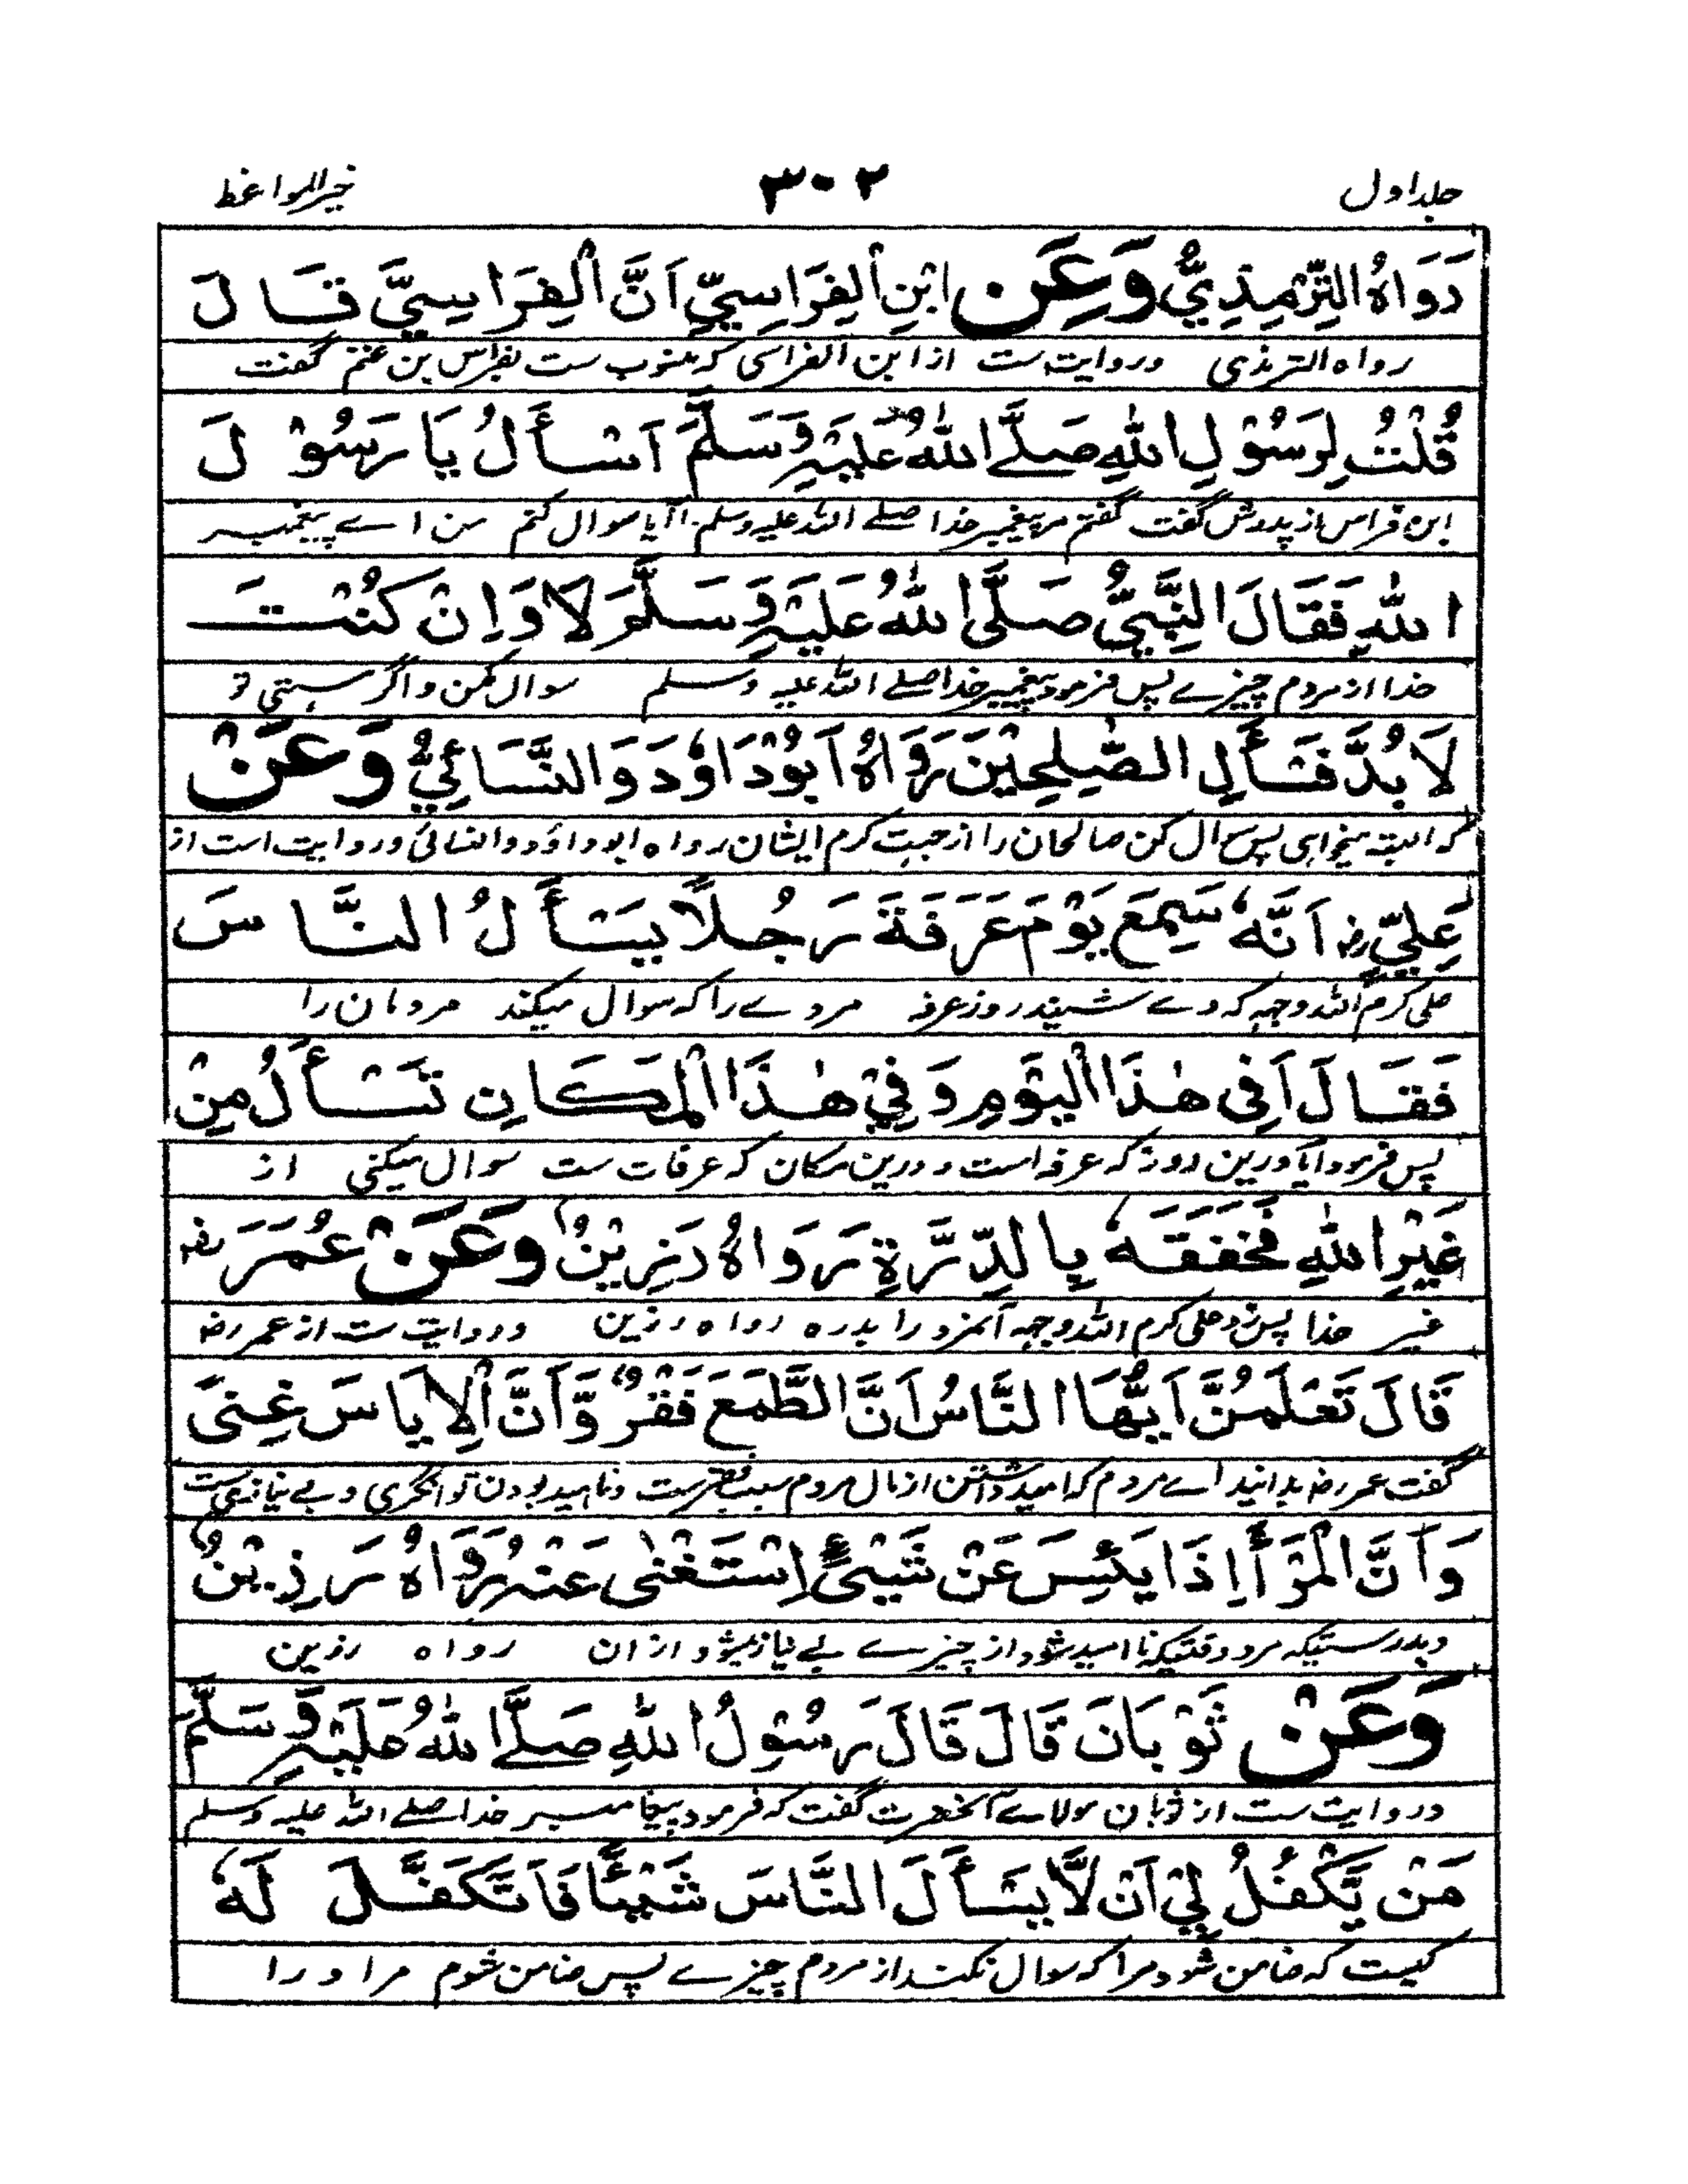 جلد اول ٣٠٢ خیر المواعظ
رَوَاهُ التِّرْمِذِيُّ وَعَنِ ابْنِ الْفِرَاسِيِّ اَنَّ الْفِرَاسِيَّ قَالَ
رواه الترمذی وروایت ست از ابن الفراسی که منسوب ست بفراس بن غنم گفت
قُلْتُ لِرَسُوْلِ اللهِ صَلَّے اللهُ عَلَيْهِ وَسَلَّمَ اَسْأَلُ يَا رَسُوْلَ
ابن فراس از پدرش گفت گفتم مر پیغمبر خدا صلے الله علیه وسلم را آیا سوال کنم من اے پیغمبر
اللهِ فَقَالَ النَّبِيُّ صَلَّى اللهُ عَلَيْهِ وَسَلَّمَ لَا وَاِنْ كُنْتَ
خدا از مردم چیزے پس فرمود پیغمبر خدا صلے الله علیه وسلم سوال مکن و اگر هستی تو
لَا بُدَّ فَسْأَلِ الصّٰلِحِيْنَ رَوَاهُ اَبُوْدَاوٗدَ وَالنَّسَائِيُّ وَعَنْ
که البته میخواهی پس سوال کن صالحان را از جهت کرم ایشان رواه ابو داؤد و النسائی و روایت است از
عَلِيٍّ رض اَنَّهٗ سَمِعَ يَوْمَ عَرَفَةَ رَجُلًا يَسْأَلُ النَّاسَ
علی کرم الله وجهه که وے شنید روز عرفه مردے را که سوال میکند مردمان را
فَقَالَ اَفِي هٰذَا الْيَوْمِ وَفِيْ هٰذَا الْمَكَانِ تَسْأَلُ مِنْ
پس فرمود آیا درین روز که عرفه است و درین مکان که عرفات ست سوال میکنی از
غَيْرِ اللهِ فَخَفَقَهٗ بِالدِّرَّةِ رَوَاهُ رَزِيْنٌ وَعَنْ عُمَرَ رض
غیر خدا پس زد علی کرم الله وجهه آنمرد را بدره رواه رزین و روایت ست از عمر رض
قَالَ تَعْلَمُنَّ اَيُّهَا النَّاسُ اَنَّ الطَّمَعَ فَقْرٌ وَّاَنَّ الْاِيَاسَ غِنًى
گفت عمر رض بدانید اے مردم که امید داشتن از مال مردم سبب فقر ست و ناامید بودن توانگری و بے نیازی ست
وَاَنَّ الْمَرْأَ اِذَا يَئِسَ عَنْ شَيْئٍ اِسْتَغْنٰى عَنْهُ رَوَاهُ رَزِيْنٌ
و بدرستیکه مرد وقتیکه ناامید شود از چیزے بے نیاز میشود از ان رواه رزین
وَعَنْ ثَوْبَانَ قَالَ قَالَ رَسُوْلُ اللهِ صَلَّے اللهُ عَلَيْهِ وَسَلَّمَ
و روایت ست از ثوبان مولاے آنحضرت گفت که فرمود پیغامبر خدا صلے الله علیه وسلم
مَنْ يَّكْفُلُ لِيْ اَنْ لَّا يَسْأَلَ النَّاسَ شَيْئًا فَاَتَكَفَّلَ لَهٗ
کیست که ضامن شود مرا که سوال نکند از مردم چیزے پس ضامن شوم مر او را